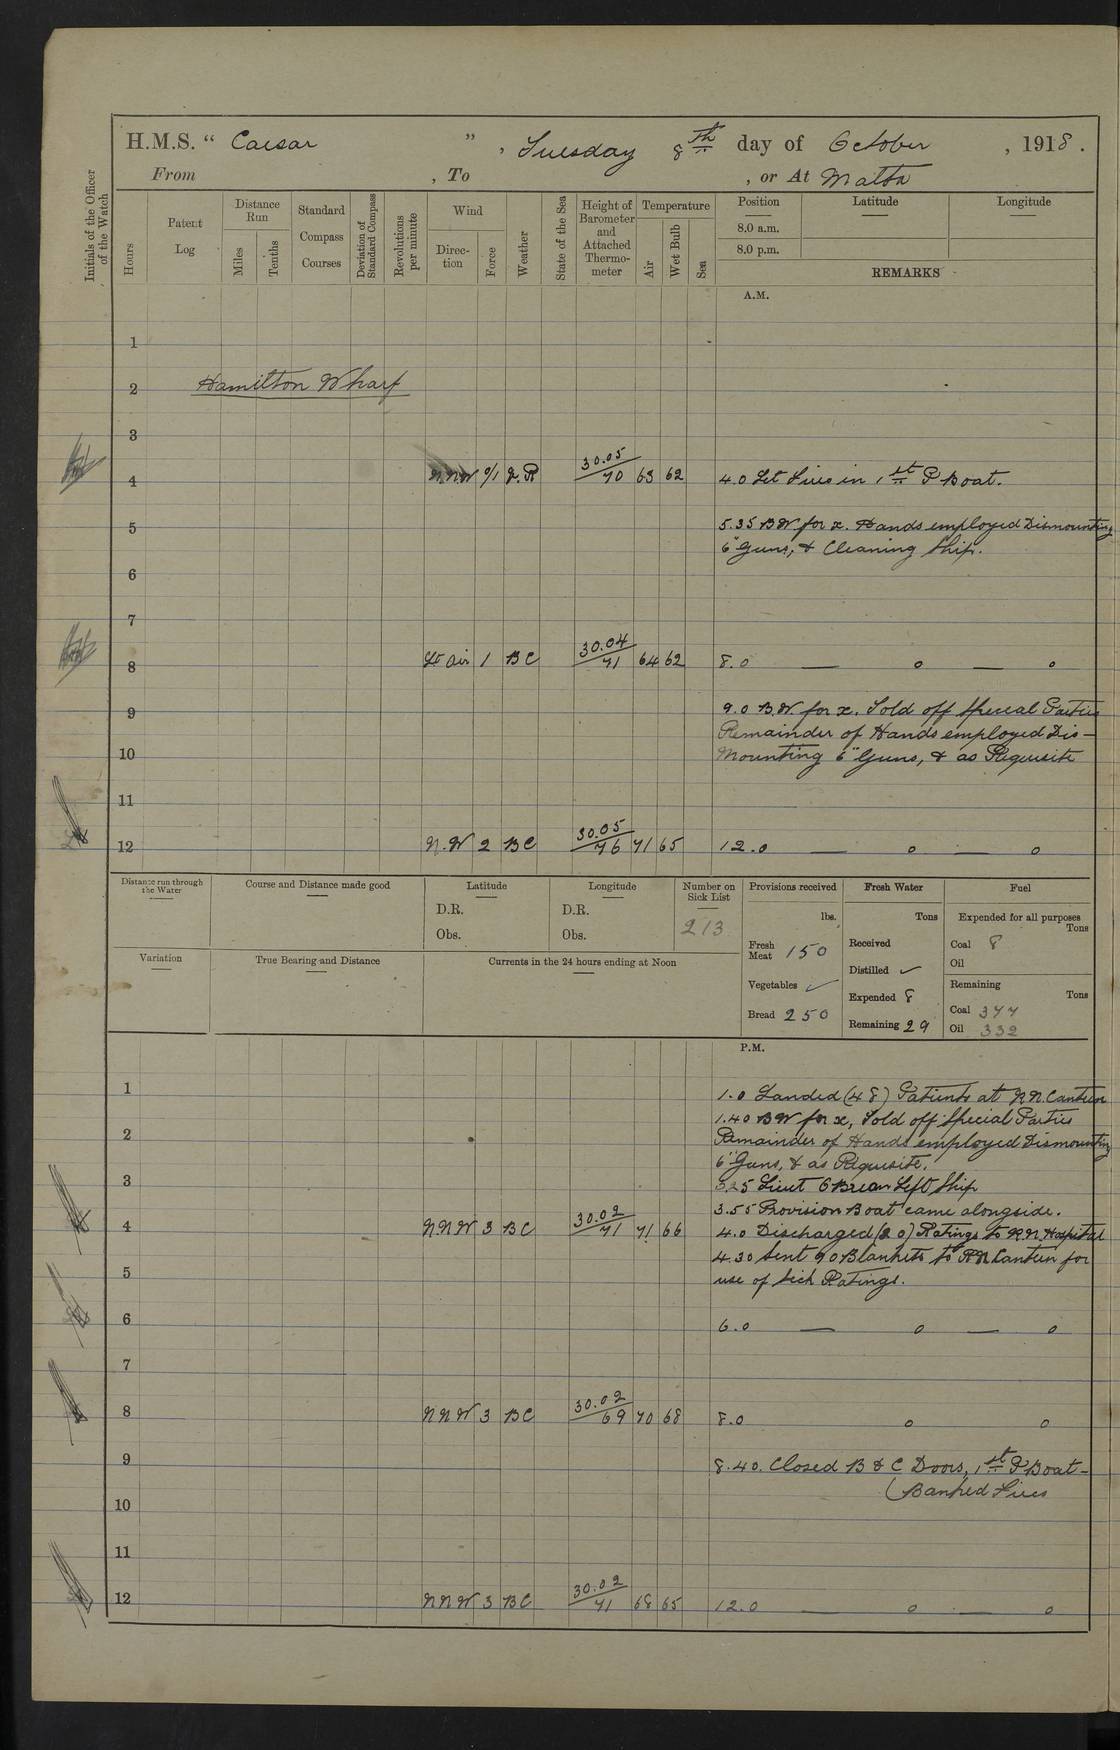 H.M.S. “ Caesar ” , Tuesday 8th day of October , 1918 .
From , To , or At Malta
Initials of the Officer of the Watch
Hours
Patent Log
Distance Run
Miles
Tenths
Standard Compass Courses
Deviation of Standard Compass
Revolutions per minute
Wind
Direc-tion
Force
Weather
State of the Sea
Height of Barometer and Attached Thermo-meter
Temperature
Air
Wet Bulb
Sea
Position Latitude Longitude
8.0 a.m.
8.0 p.m.
REMARKS
A.M.
1
2 Hamilton Wharf
3
4 N.N.W 0/1 30.05/70 63 62 4.0 Let Fires in 1st P Boat.
5 5.35 BW for x. Hands employed Dismounting
6" Guns, & Cleaning Ship.
6
7
8 Lt air 1 BC 30.04/71 64 62 8.0 — o — o
9 9.0 B.W. for x. Told off Special Parties
Remainder of Hands employed Dis-
10 Mounting 6" Guns, & as Requisite
11
12 N.W 2 BC 30.05/76 71 65 12.0 — o — o
Distance run through the Water
Course and Distance made good
Latitude
D.R.
Obs.
Longitude
D.R.
Obs.
Number on Sick List
213
Provisions received
lbs.
Fresh Meat 150
Vegetables ✓
Bread 250
Fresh Water
Tons
Received
Distilled ✓
Expended 8
Remaining 29
Fuel
Expended for all purposes
Tons
Coal 8
Oil
Remaining
Tons
Coal 377
Oil 332
Variation
True Bearing and Distance
Currents in the 24 hours ending at Noon
P.M.
1 1.0 Landed (48) Patients at R.N. Canteen
1.40 BW for x, Told off Special Parties
2 Remainder of Hands employed Dismounting
6" Guns, & as Requisite.
3 3.25 Lieut OBrien Left Ship
3.55 Provision Boat came alongside.
4 N.N.W 3 BC 30.02/71 71 66 4.0 Discharged (20) Ratings to R.N. Hospital
4.30 Sent 90 Blankets to RN Canteen for
5 use of Sick Ratings.
6 6.0 — o — o
7
8 N N W 3 BC 30.02/69 70 68 8.0 o o
9 8.40. Closed B & C Doors, 1st P Boat-
(Banked Fires
10
11
12 N N W 3 BC 30.02/71 68 65 12.0 — o — o